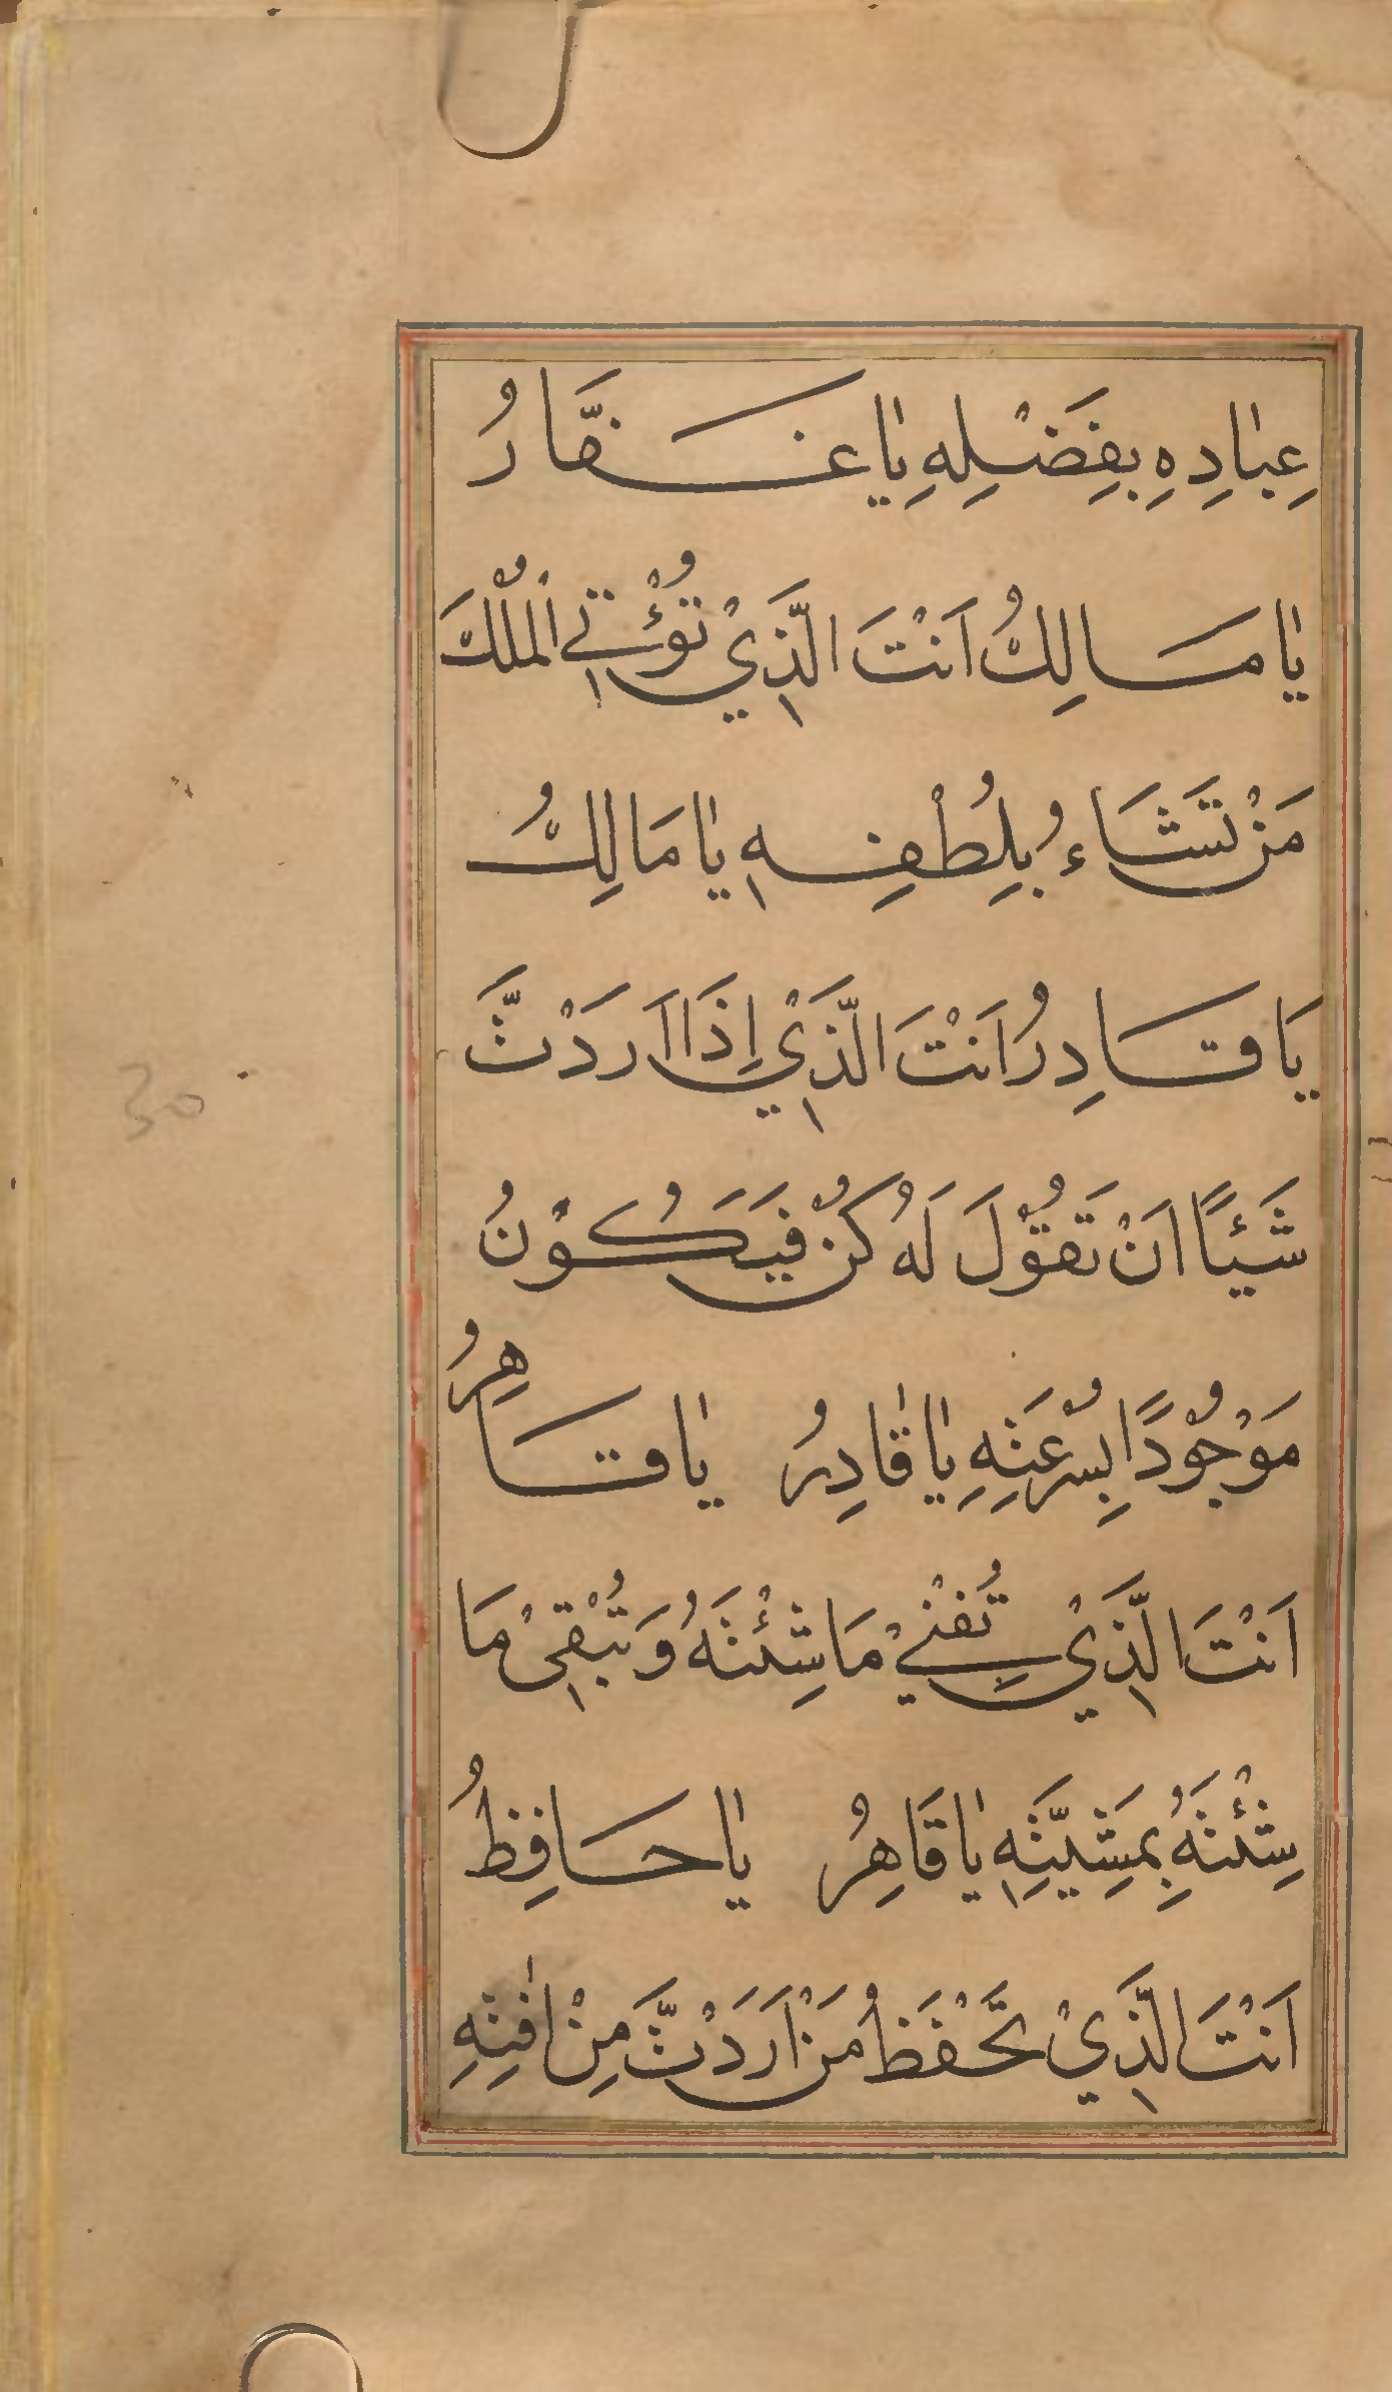 عِبٰادِهِ بِفَضْلِهِ يٰا غَفَّارُ
يٰا مَالِكُ اَنْتَ الَّذِيْ تُؤْتِي الْمُلْكَ
مَنْ تَشَاءُ بِلُطْفِهِ يٰا مَالِكُ
يَا قَادِرُ اَنْتَ الَّذِيْ اِذَا اَرَدْتَّ
شَيْئًا اَنْ تَقُوْلَ لَهُ كُنْ فَيَكُوْنُ
مَوْجُوْدًا بِسُرْعَتِهِ يٰا قٰادِرُ يٰا قَاهِرُ
اَنْتَ الَّذِيْ تُفْنِيْ مَا شِئْتَهُ وَتُبْقِيْ مَا
شِئْتَهُ بِمَشِيَّتِهِ يٰا قَاهِرُ يٰا حَافِظُ
اَنْتَ الَّذِيْ تَحْفَظُ مَنْ اَرَدْتَّ مِنْ اٰفَتِهِ
30